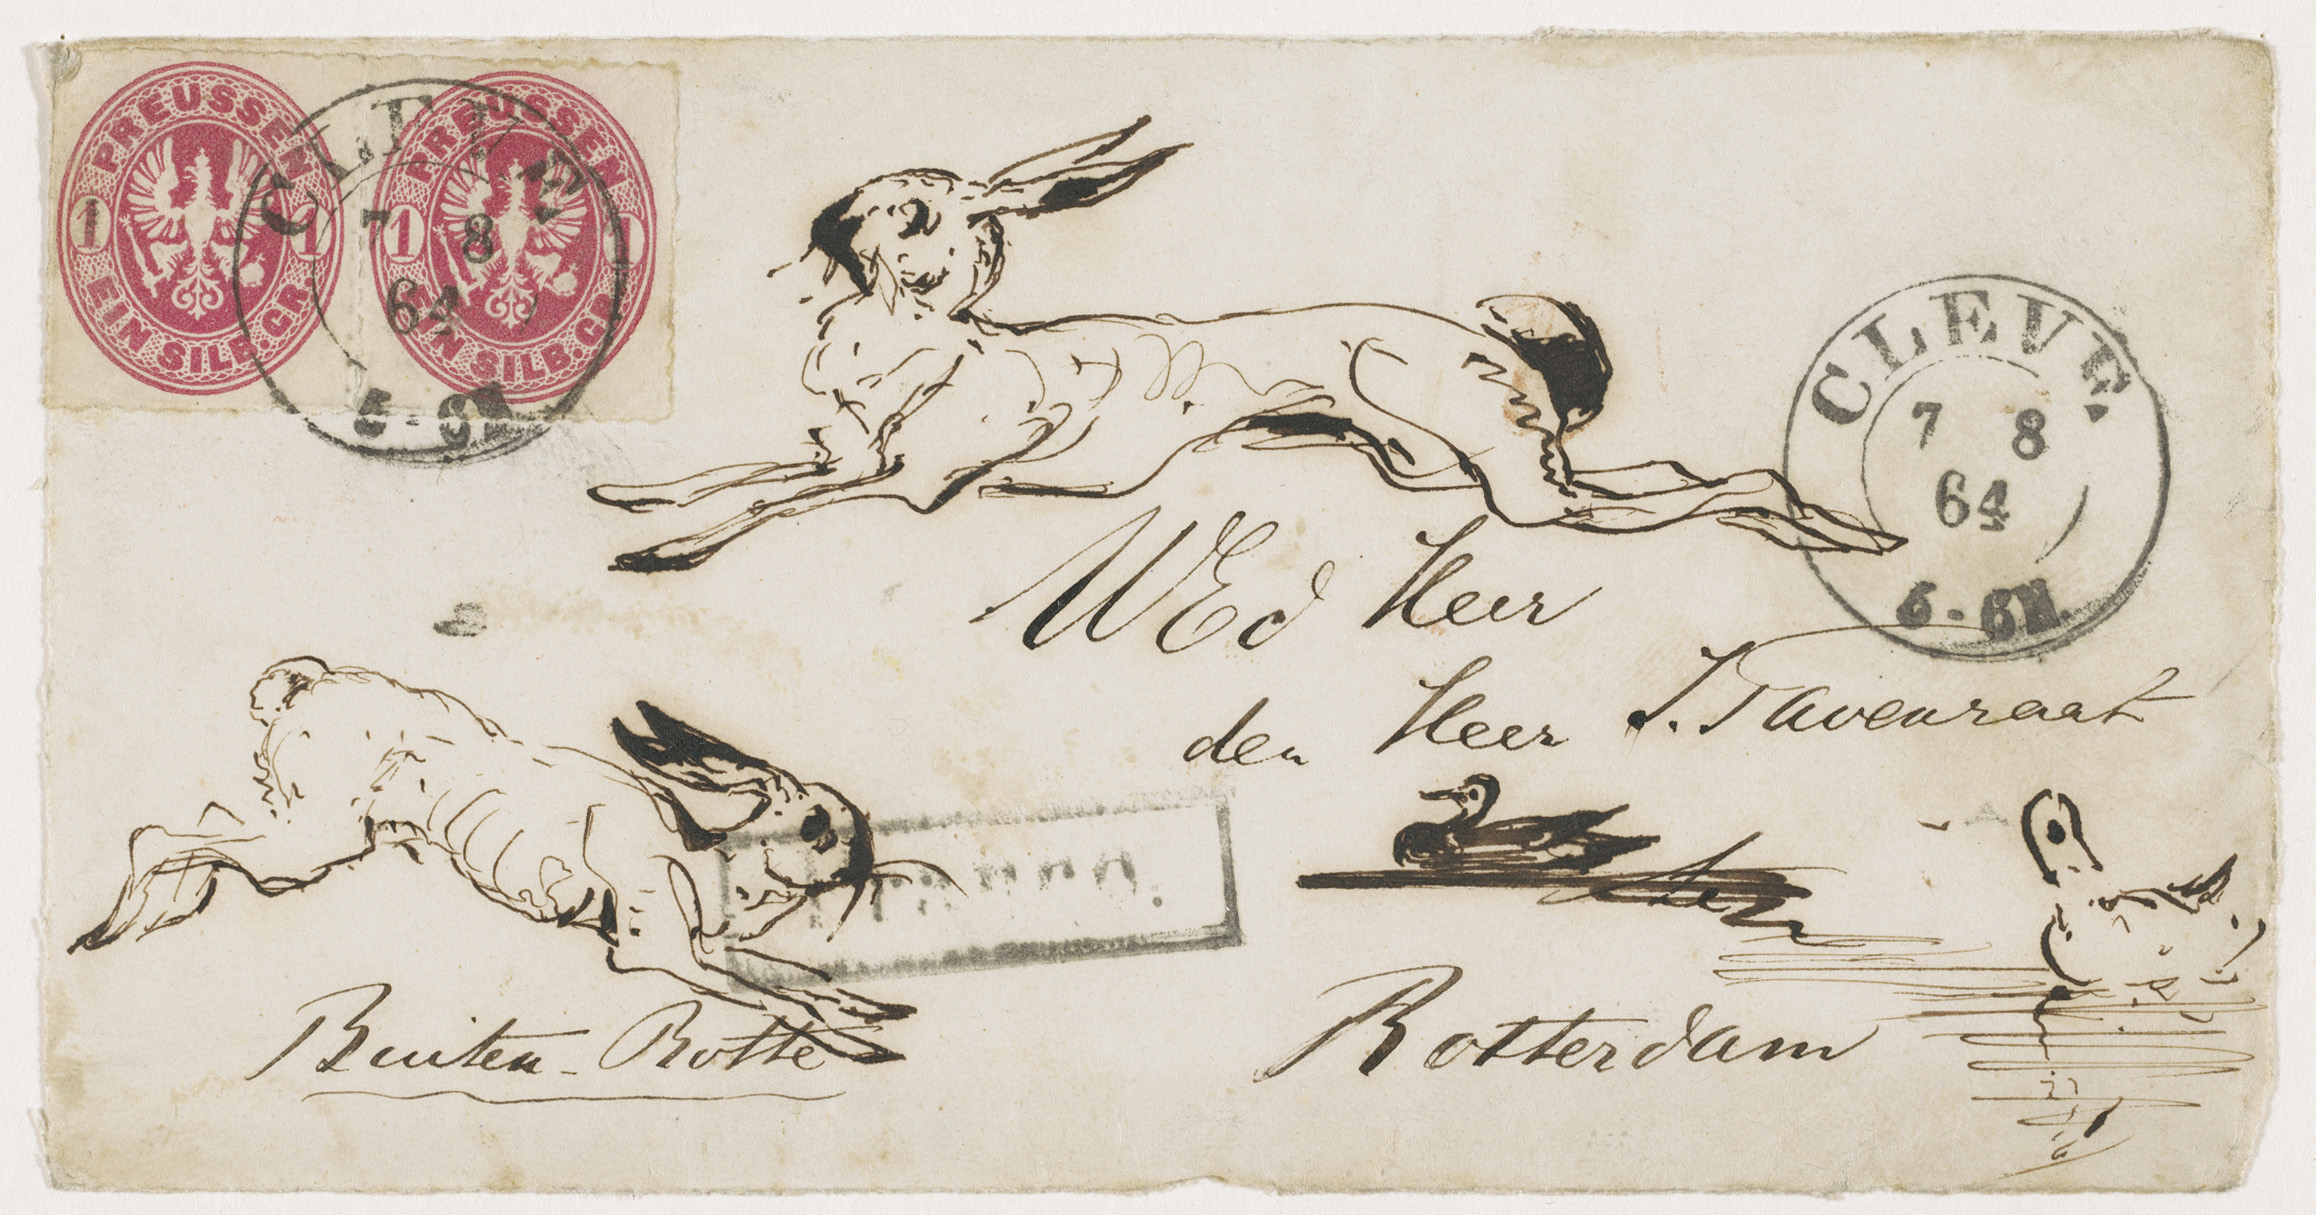 PREUSSEN
1 1
EIN SILB. GR.
PREUSSEN
1 1
EIN SILB. GR.
CLEVE
7 8
64
5-6N
CLEVE.
7 8
64
5-6N.
WEd Heer
den Heer J. Tavenraat
ten
Rotterdam
Buiten-Rotte